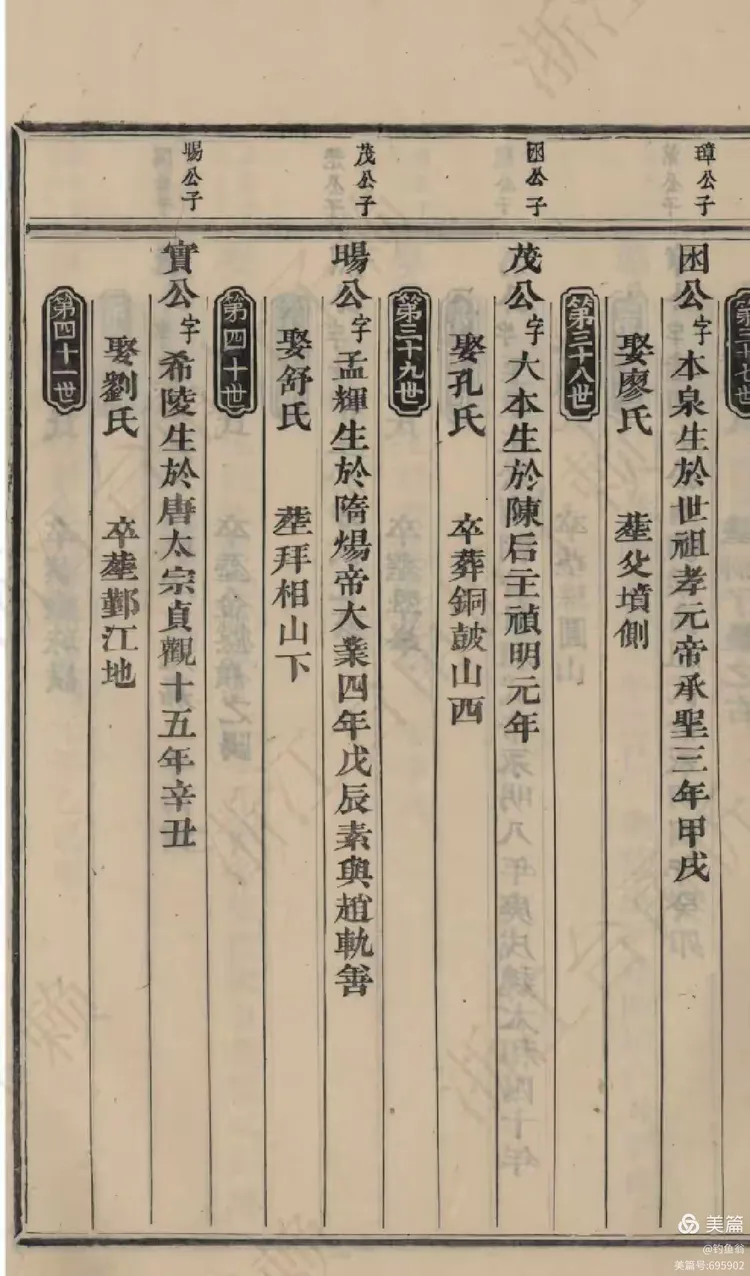 第三十七世
璋公子
困公字本泉生於世祖孝元帝承聖三年甲戌
娶廖氏 塟父墳側
第三十八世
困公子
茂公字大本生於陳后主禎明元年
娶孔氏 卒葬銅皷山西
第三十九世
茂公子
暘公字孟輝生於隋煬帝大業四年戊辰素與趙軌善
娶舒氏 塟拜相山下
第四十世
暘公子
實公字希陵生於唐太宗貞觀十五年辛丑
娶劉氏 卒塟鄞江地
第四十一世
美篇
@钓鱼翁
美篇号:695902